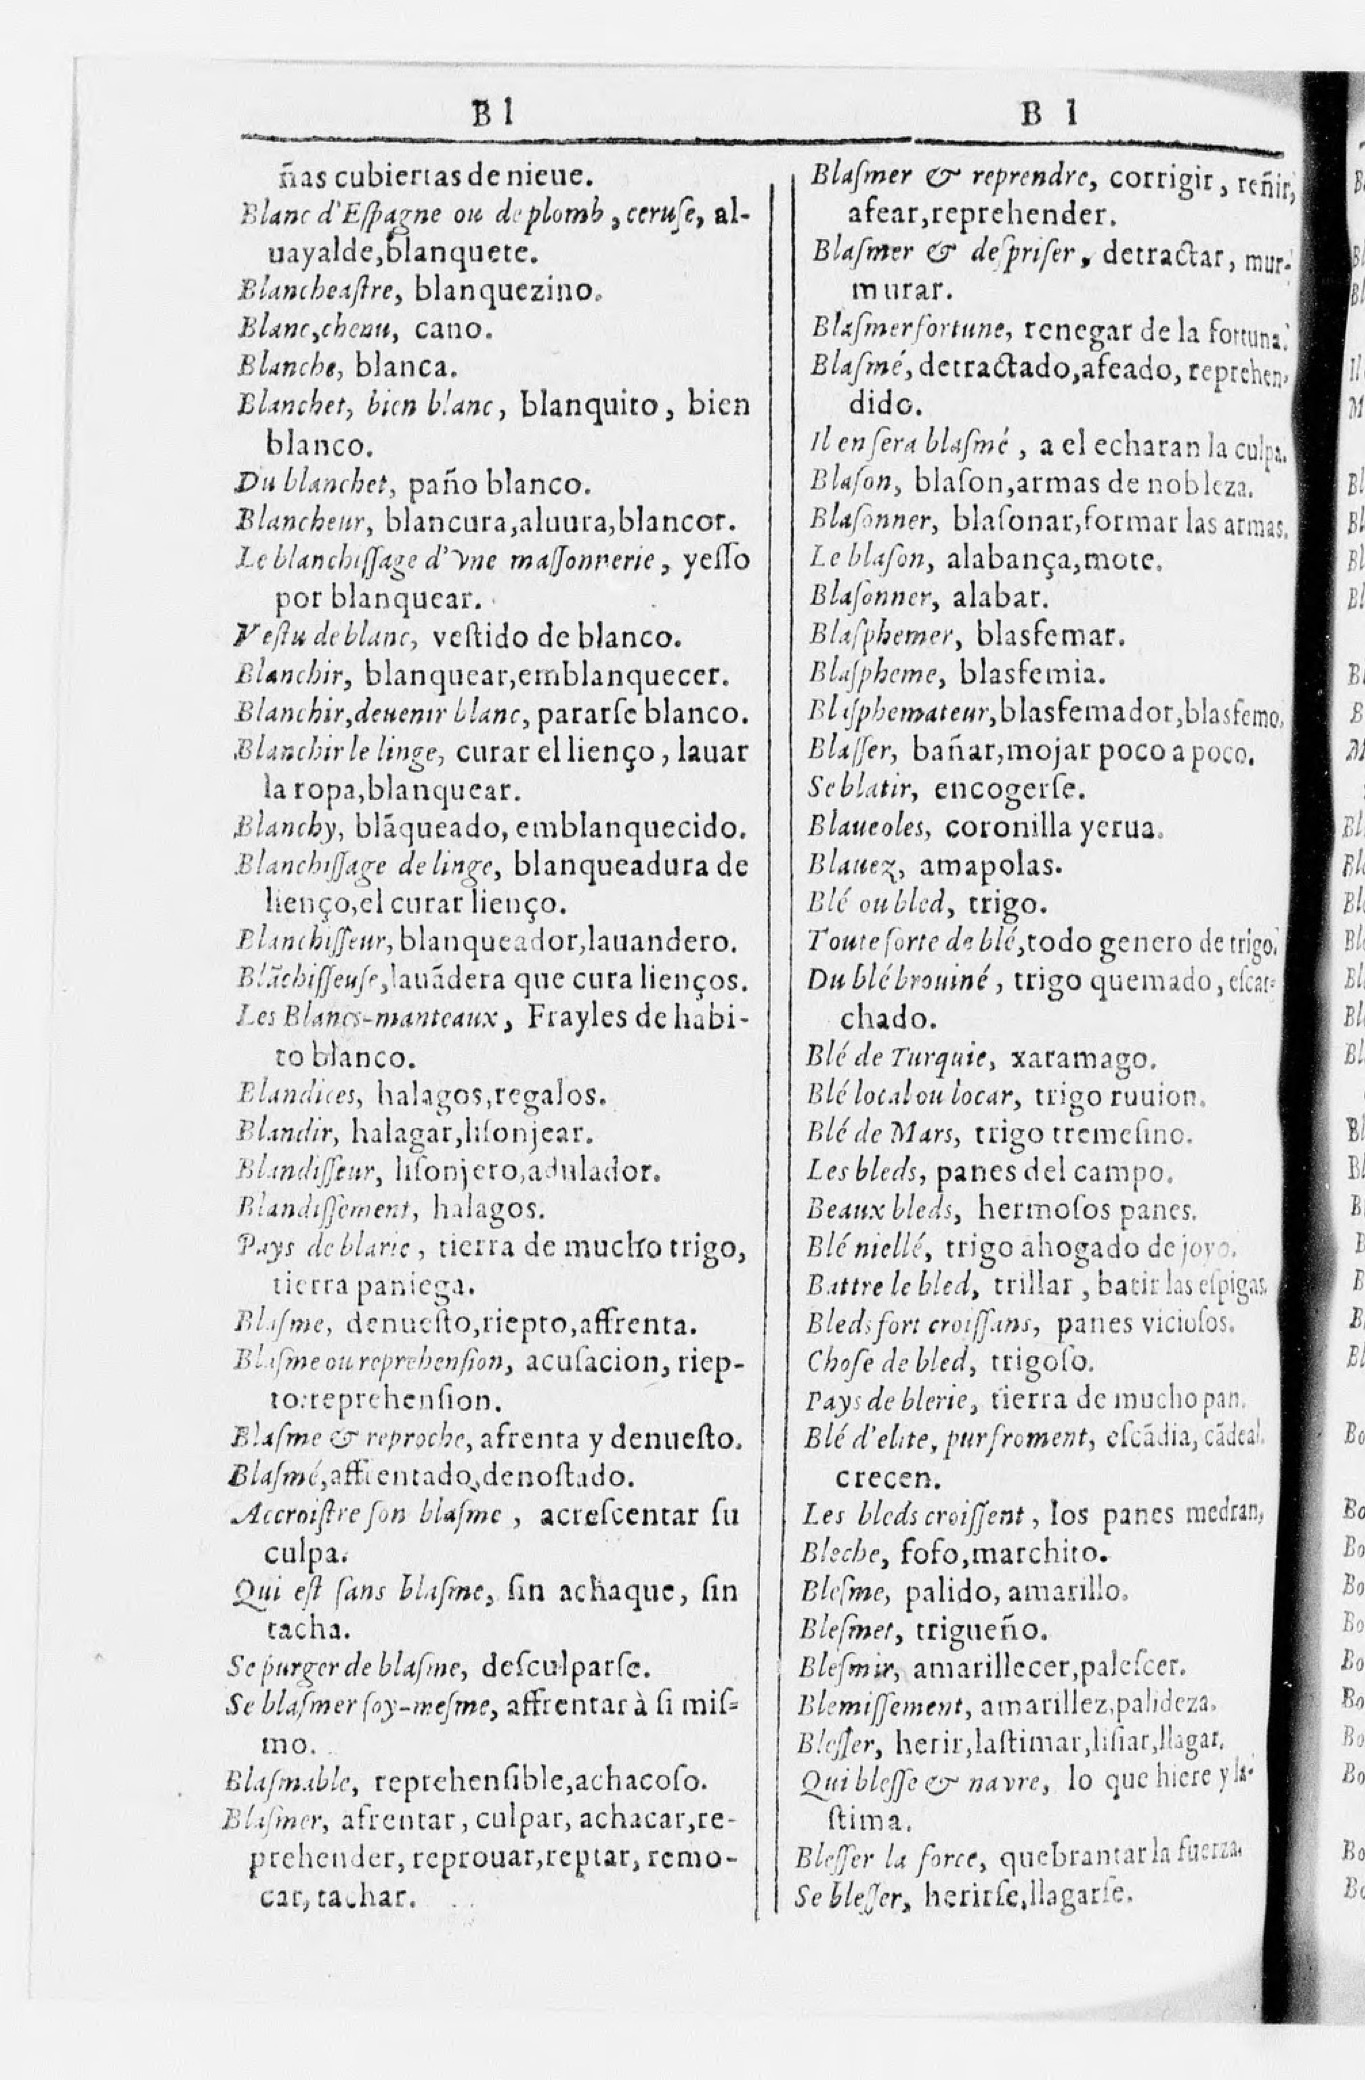 B l
ñas cubiertas de nieue.
Blanc d'Eſpagne ou de plomb, ceruſe, al-
uayalde, blanquete.
Blancheaſtre, blanquezino.
Blanc, chenu, cano.
Blanche, blanca.
Blanchet, bien blanc, blanquito, bien
blanco.
Du blanchet, paño blanco.
Blancheur, blancura, aluura, blancor.
Le blanchiſſage d'vne maſſonnerie, yeſſo
por blanquear.
Veſtu de blanc, veſtido de blanco.
Blanchir, blanquear, emblanquecer.
Blanchir, deuenir blanc, pararſe blanco.
Blanchir le linge, curar el lienço, lauar
la ropa, blanquear.
Blanchy, blãqueado, emblanquecido.
Blanchiſſage de linge, blanqueadura de
lienço, el curar lienço.
Blanchiſſeur, blanqueador, lauandero.
Blãchiſſeuſe, lauãdera que cura lienços.
Les Blancs-manteaux, Frayles de habi-
to blanco.
Blandices, halagos, regalos.
Blandir, halagar, liſonjear.
Blandiſſeur, liſonjero, adulador.
Blandiſſement, halagos.
Pays de blarie, tierra de mucho trigo,
tierra paniega.
Blaſme, denueſto, riepto, affrenta.
Blaſme ou reprehenſion, acuſacion, riep-
to: reprehenſion.
Blaſme & reproche, afrenta y denueſto.
Blaſmé, affrentado, denoſtado.
Accroiſtre ſon blaſme, acreſcentar ſu
culpa.
Qui eſt ſans blaſme, ſin achaque, ſin
tacha.
Se purger de blaſme, deſculparſe.
Se blaſmer ſoy-meſme, affrentar à ſi miſ-
mo.
Blaſmable, reprehenſible, achacoſo.
Blaſmer, afrentar, culpar, achacar, re-
prehender, reprouar, reptar, remo-
car, tachar.
B l
Blaſmer & reprendre, corrigir, reñir,
afear, reprehender.
Blaſmer & deſpriſer, detractar, mur-
murar.
Blaſmer fortune, renegar de la fortuna.
Blaſmé, detractado, afeado, reprehen-
dido.
Il en ſera blaſmé, a el echaran la culpa.
Blaſon, blaſon, armas de nobleza.
Blaſonner, blaſonar, formar las armas.
Le blaſon, alabança, mote.
Blaſonner, alabar.
Blaſphemer, blasfemar.
Blaſpheme, blasfemia.
Blaſphemateur, blasfemador, blasfemo.
Blaſſer, bañar, mojar poco a poco.
Se blatir, encogerſe.
Blaueoles, coronilla yerua.
Blauez, amapolas.
Blé ou bled, trigo.
Toute ſorte de blé, todo genero de trigo.
Du blé brouiné, trigo quemado, eſcar-
chado.
Blé de Turquie, xaramago.
Blé local ou locar, trigo ruuion.
Blé de Mars, trigo tremeſino.
Les bleds, panes del campo.
Beaux bleds, hermoſos panes.
Blé niellé, trigo ahogado de joyo.
Battre le bled, trillar, batir las eſpigas.
Bleds fort croiſſans, panes vicioſos.
Choſe de bled, trigoſo.
Pays de blerie, tierra de mucho pan.
Blé d'elite, pur froment, eſcãdia, cãdeal.
crecen.
Les bleds croiſſent, los panes medran,
Bleche, fofo, marchito.
Bleſme, palido, amarillo.
Bleſmet, trigueño.
Bleſmir, amarillecer, paleſcer.
Blemiſſement, amarillez, palideza.
Bleſſer, herir, laſtimar, liſiar, llagar.
Qui bleſſe & navre, lo que hiere y la-
ſtima.
Bleſſer la force, quebrantar la fuerza.
Se bleſſer, herirſe, llagarſe.